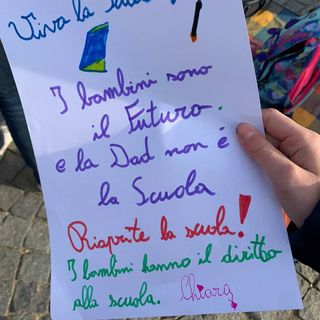 Viva la
I bambini sono
il Futuro.
e la Dad non è
la Scuola
Riaprite la scuola!
I bambini hanno il diritto
alla scuola. Chiara